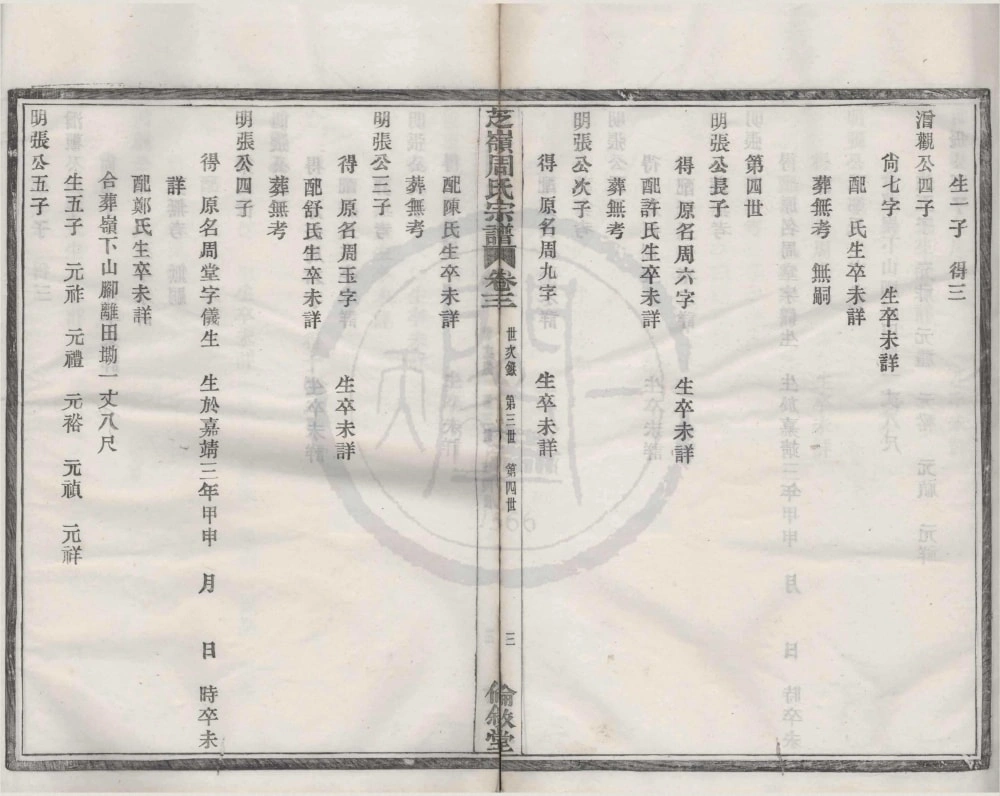 生一子 得三
湝觀公四子
尙七字 生卒未詳
配 氏生卒未詳
葬無考 無嗣
第四世
明張公長子
得一原名周六字 生卒未詳
配許氏生卒未詳
葬無考
明張公次子
得二原名周九字 生卒未詳
芝嶺周氏宗譜 卷三
世次錄 第三世 第四世
三
倫敘堂
配陳氏生卒未詳
葬無考
明張公三子
得 原名周玉字 生卒未詳
配舒氏生卒未詳
葬無考
明張公四子
得 原名周堂字儀生 生於嘉靖三年甲申 月 日 時卒未
詳
配鄭氏生卒未詳
合葬嶺下山腳離田塝一丈八尺
生五子 元祚 元禮 元裕 元禎 元祥
明張公五子